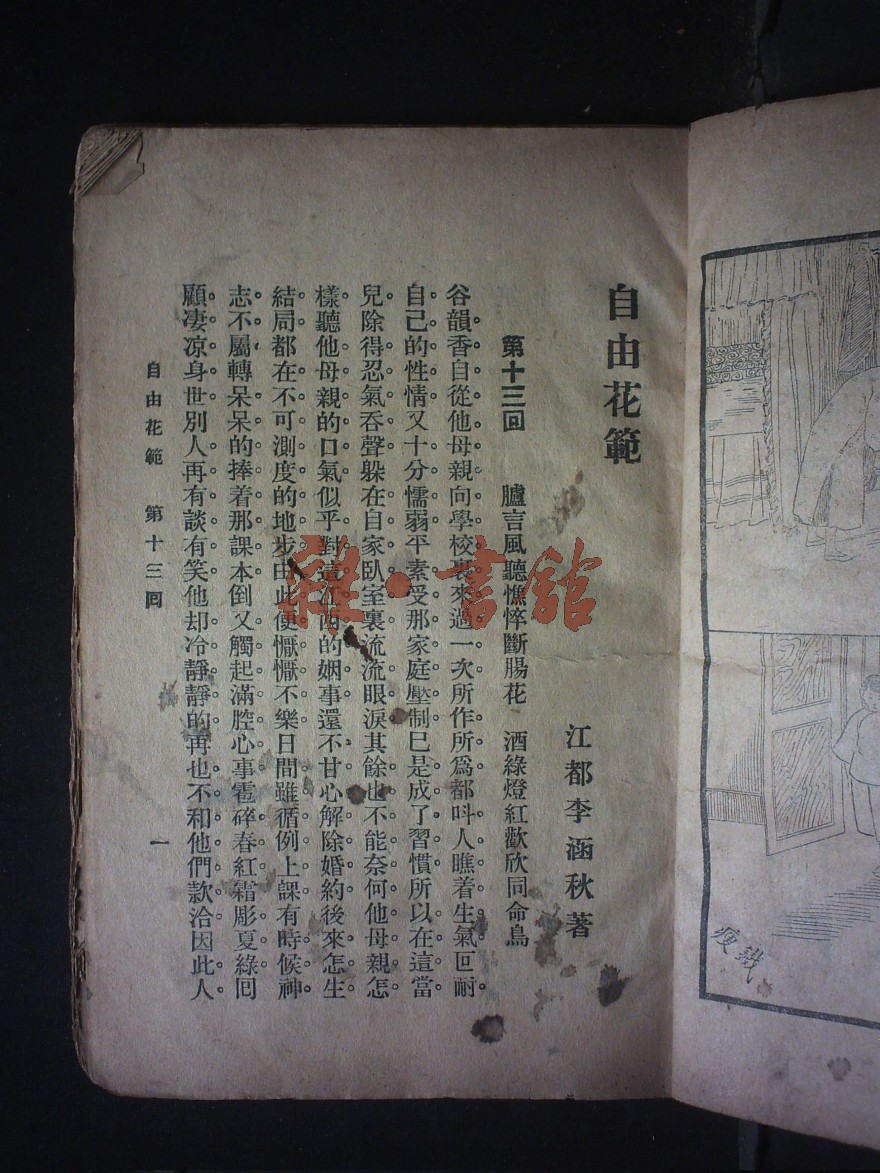 自由花範
江都李涵秋著
第十三回 臚言風聽憔悴斷腸花 酒綠燈紅歡欣同命鳥
谷韻香自從他母親向學校裏來過一次所作所爲都呌人瞧着生氣叵耐
自己的性情又十分懦弱平素受那家庭壓制已是成了習慣所以在這當
兒除得忍氣吞聲躲在自家臥室裏流流眼淚其餘也不能奈何他母親怎
樣聽他母親的口氣似乎對這江西的姻事還不甘心解除婚約後來怎生
結局都在不可測度的地步由此便懨懨不樂日間雖循例上課有時候神
志不屬轉呆呆的捧着那課本倒又觸起滿腔心事雹碎春紅霜彫夏綠囘
顧凄凉身世別人再有談有笑他却冷靜靜的再也不和他們款洽因此人
自由花範 第十三囘 一
雜·書館
瘦鐵